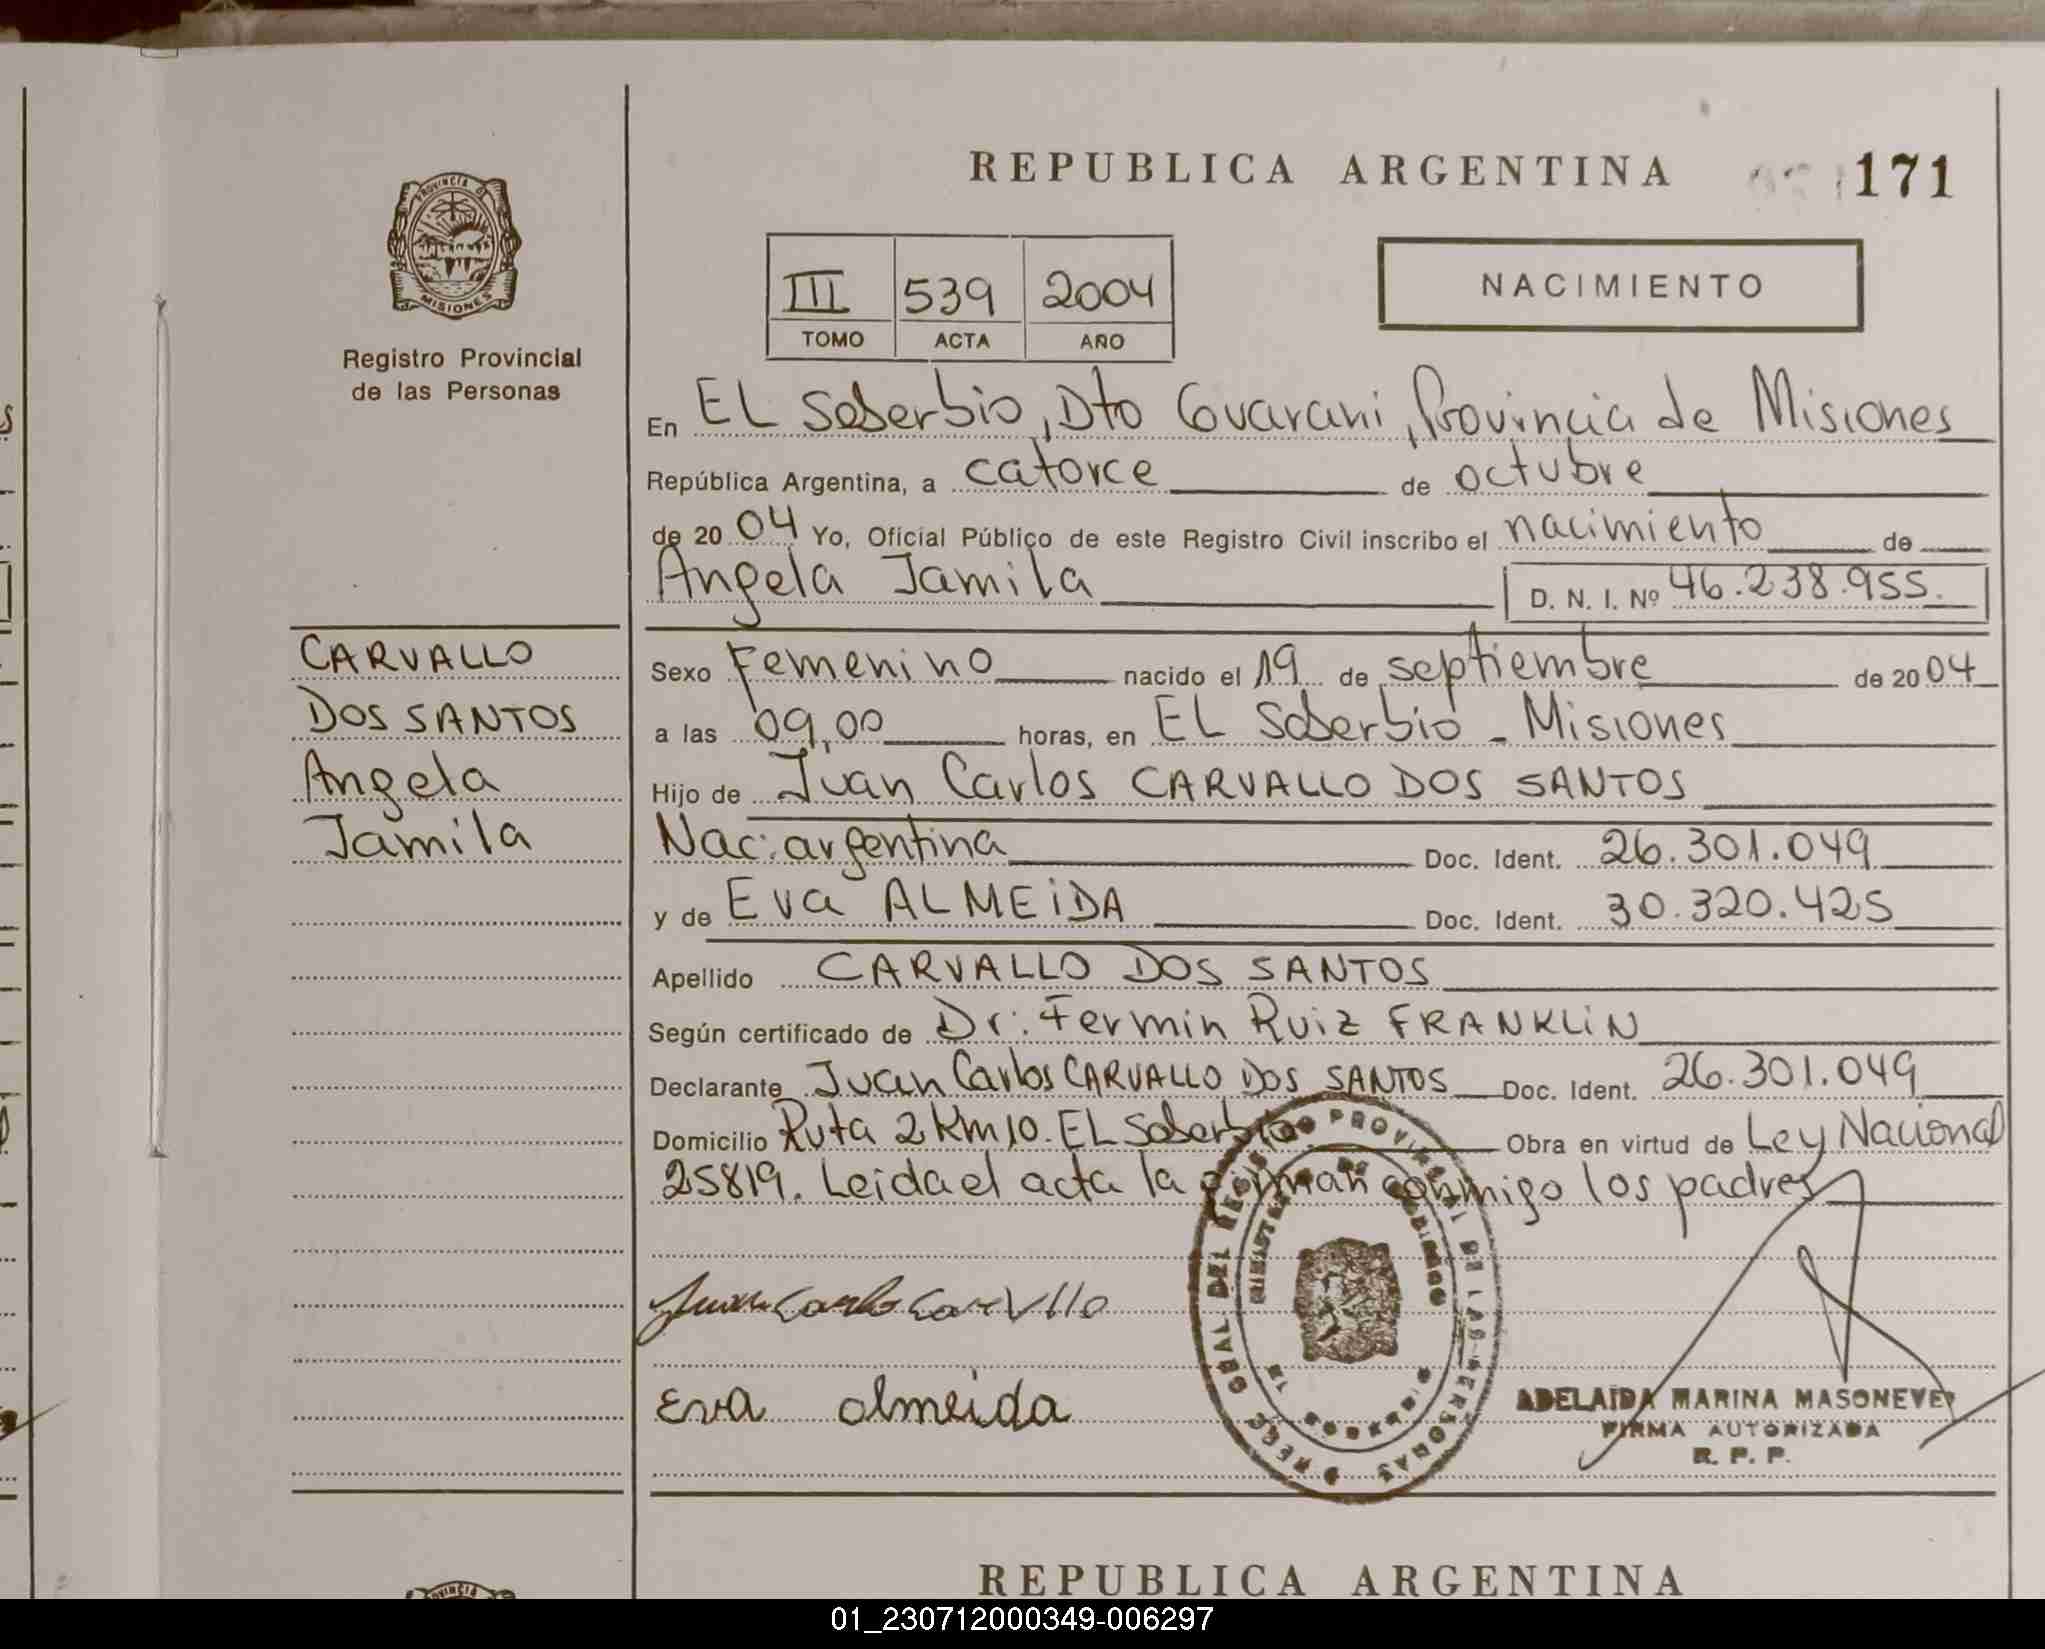 REPUBLICA ARGENTINA
171
PROVINCIA D
MISIONES
Registro Provincial
de las Personas
III 539 2004
TOMO ACTA AÑO
NACIMIENTO
En EL Soberbio, Dto Guarani, Provincia de Misiones
República Argentina, a catorce de octubre
de 20 04 Yo, Oficial Público de este Registro Civil inscribo el nacimiento de
Angela Jamila D. N. I. Nº 46.238.955.
CARVALLO
DOS SANTOS
Angela
Jamila
Sexo Femenino nacido el 19 de septiembre de 20 04
a las 09,00 horas, en EL Soberbio - Misiones
Hijo de Juan Carlos CARVALLO DOS SANTOS
Nac: argentina Doc. Ident. 26.301.049
y de Eva ALMEIDA Doc. Ident. 30.320.425
Apellido CARVALLO DOS SANTOS
Según certificado de Dr: Fermin Ruiz FRANKLIN
Declarante Juan Carlos CARVALLO DOS SANTOS Doc. Ident. 26.301.049
Domicilio Ruta 2 Km 10. EL Soberbio Obra en virtud de Ley Nacional
25819. Leida el acta la firman conmigo los padres
Juan Carlos Carvllo
Eva almeida
GRAL DEL REGISTRO PROVINCIAL DE LAS PERSONAS
ADELAIDA MARINA MASONEVE
FIRMA AUTORIZADA
R. P. P.
REPUBLICA ARGENTINA
01_230712000349-006297